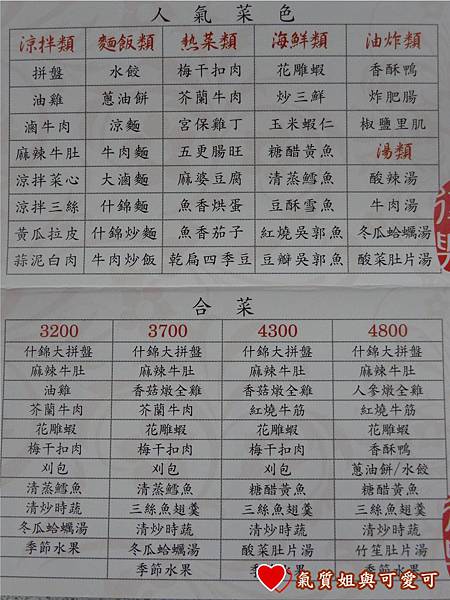 人氣菜色
涼拌類 麵飯類 熱菜類 海鮮類 油炸類
拼盤 水餃 梅干扣肉 花雕蝦 香酥鴨
油雞 蔥油餅 芥蘭牛肉 炒三鮮 炸肥腸
滷牛肉 涼麵 宮保雞丁 玉米蝦仁 椒鹽里肌
麻辣牛肚 牛肉麵 五更腸旺 糖醋黃魚 湯類
涼拌菜心 大滷麵 麻婆豆腐 清蒸鱈魚 酸辣湯
涼拌三絲 什錦麵 魚香烘蛋 豆酥雪魚 牛肉湯
黃瓜拉皮 什錦炒麵 魚香茄子 紅燒吳郭魚 冬瓜蛤蠣湯
蒜泥白肉 牛肉炒飯 乾扁四季豆 豆瓣吳郭魚 酸菜肚片湯
合菜
3200 3700 4300 4800
什錦大拼盤 什錦大拼盤 什錦大拼盤 什錦大拼盤
麻辣牛肚 麻辣牛肚 麻辣牛肚 麻辣牛肚
油雞 香菇燉全雞 香菇燉全雞 人參燉全雞
芥蘭牛肉 芥蘭牛肉 紅燒牛筋 紅燒牛筋
花雕蝦 花雕蝦 花雕蝦 花雕蝦
梅干扣肉 梅干扣肉 梅干扣肉 香酥鴨
刈包 刈包 刈包 蔥油餅/水餃
清蒸鱈魚 清蒸鱈魚 糖醋黃魚 糖醋黃魚
清炒時蔬 三絲魚翅羹 三絲魚翅羹 三絲魚翅羹
冬瓜蛤蠣湯 清炒時蔬 清炒時蔬 清炒時蔬
季節水果 冬瓜蛤蠣湯 酸菜肚片湯 竹笙肚片湯
季節水果 季節水果 季節水果
氣質姐與可愛可